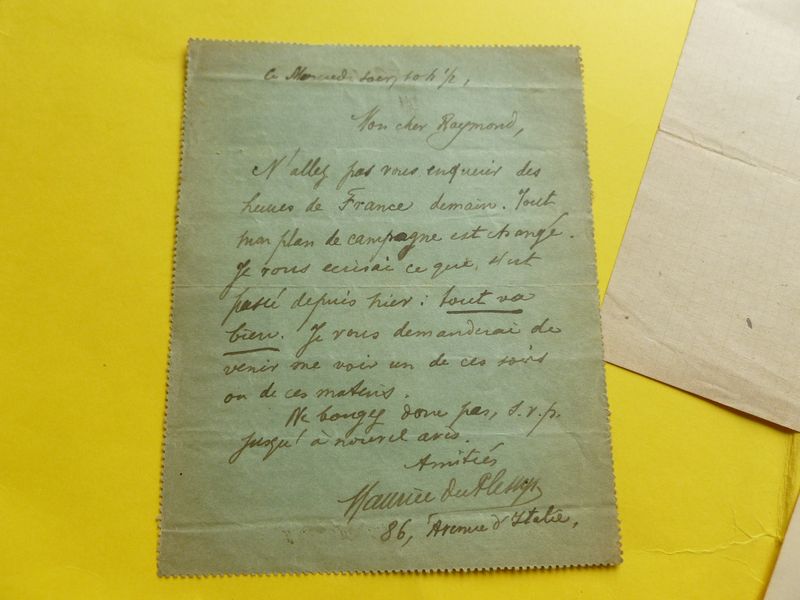 Ce Mercredi soir, 10 h 1/2,
Mon cher Raymond,
N'allez pas vous enquérir des
heures de France demain. Tout
mon plan de campagne est changé.
Je vous écrirai ce que s'est
passé depuis hier : tout va
bien. Je vous demanderai de
venir me voir un de ces soirs
ou de ces matins.
Ne bougez donc pas, s.v.p.
jusqu'à nouvel avis.
Amitiés
Maurice du Plessys
86, Avenue d'Italie,